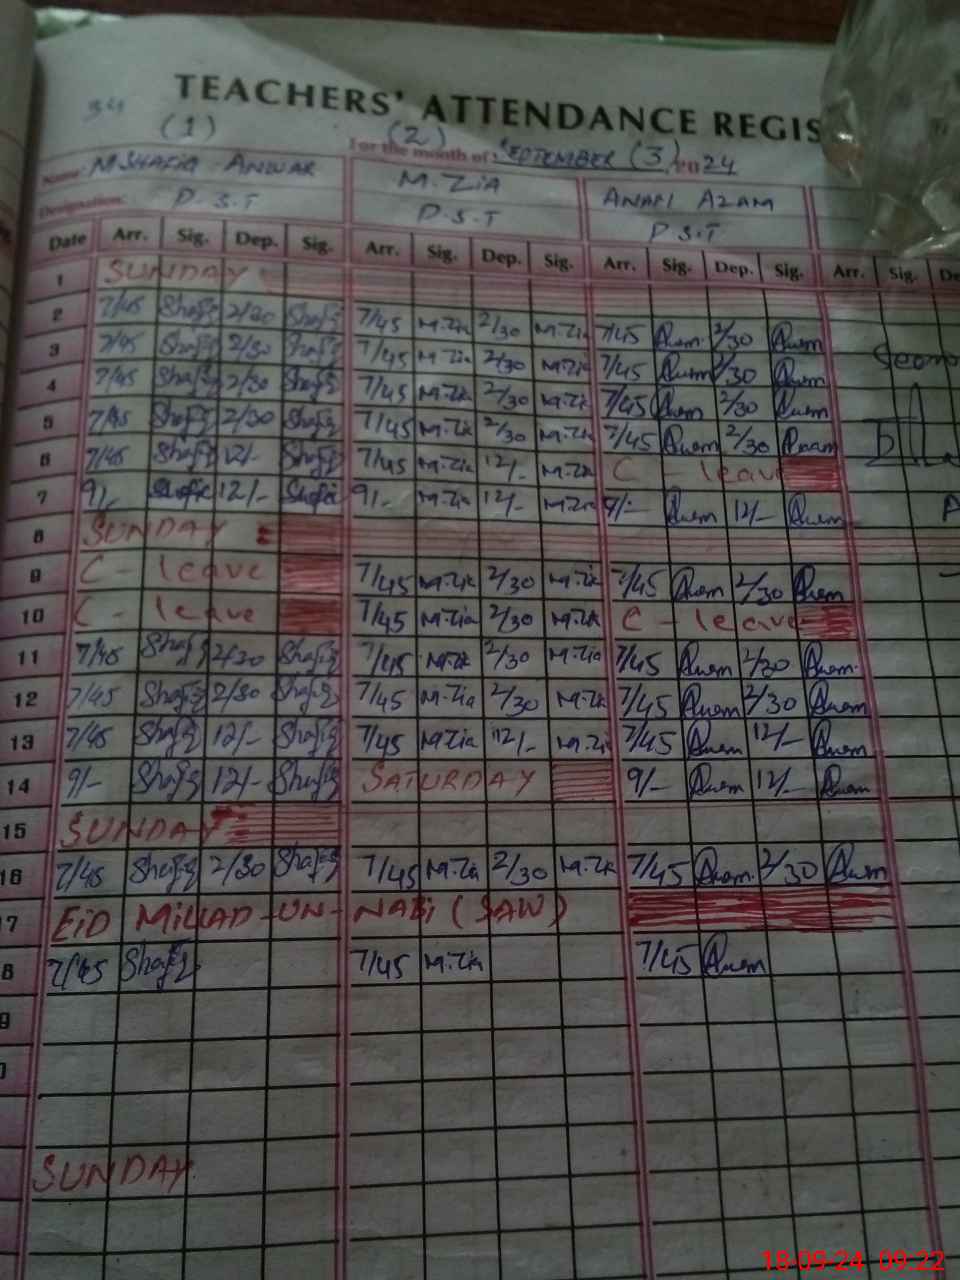 TEACHERS' ATTENDANCE REGIS
(1) (2) (3)
For the month of SEPTEMBER 2024
Name: M.SHAFIQ ANWAR M.ZIA AZAM
Designation: P.S.T P.S.T P.S.T
Date Arr. Sig. Dep. Sig. Arr. Sig. Dep. Sig. Arr. Sig. Dep. Sig. Arr. Sig. De
1 SUNDAY
2 7/45 Shafiq 2/30 Shafiq 7/45 M.Zia 2/30 M.Zia 7/45 2/30
3 7/45 Shafiq 2/30 Shafiq 7/45 M.Zia 2/30 M.Zia 7/45 2/30
4 7/45 Shafiq 2/30 Shafiq 7/45 M.Zia 2/30 M.Zia 7/45 2/30
5 7/45 Shafiq 2/30 Shafiq 7/45 M.Zia 2/30 M.Zia 7/45 2/30
6 7/45 Shafiq 12/- Shafiq 7/45 M.Zia 12/- M.Zia C - leave
7 9/- Shafiq 12/- Shafiq 9/- M.Zia 12/- M.Zia 9/- 12/-
8 SUNDAY
9 C - leave 7/45 M.Zia 2/30 M.Zia 7/45 2/30
10 C - leave 7/45 M.Zia 2/30 M.Zia C - leave
11 7/45 Shafiq 2/30 Shafiq 7/45 M.Zia 2/30 M.Zia 7/45 2/30
12 7/45 Shafiq 2/30 Shafiq 7/45 M.Zia 2/30 M.Zia 7/45 2/30
13 7/45 Shafiq 12/- Shafiq 7/45 M.Zia 12/- M.Zia 7/45 12/-
14 9/- Shafiq 12/- Shafiq SATURDAY 9/- 12/-
15 SUNDAY
16 7/45 Shafiq 2/30 Shafiq 7/45 M.Zia 2/30 M.Zia 7/45 2/30
7 EID MILLAD-UN-NABI (SAW)
8 7/45 Shafiq 7/45 M.Zia 7/45
9
SUNDAY
18-09-24 09:22